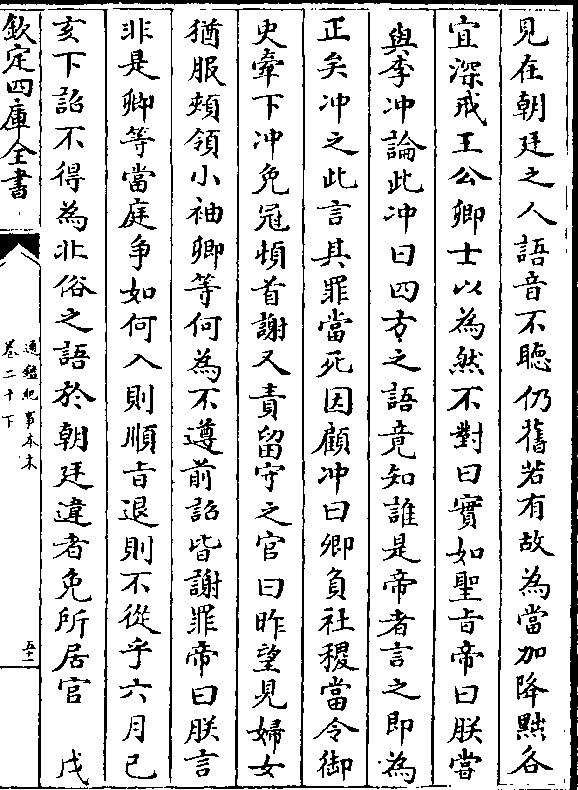 見在朝廷之人語音不聽仍舊若有故為當加降黜各
宜深戒王公卿士以為然不對曰實如聖旨帝曰朕嘗
與李冲論此冲曰四方之語竟知誰是帝者言之即為
正矣冲之此言其罪當死因顧冲曰卿負社稷當令御
史牽下冲免冠頓首謝又責留守之官曰昨望見婦女
猶服頰領小袖卿等何為不遵前詔皆謝罪帝曰朕言
非是卿等當庭争如何入則順旨退則不從乎六月己
亥下詔不得為北俗之語於朝廷違者免所居官　戊
欽定四庫全書
通鑑紀事本末
卷二十下